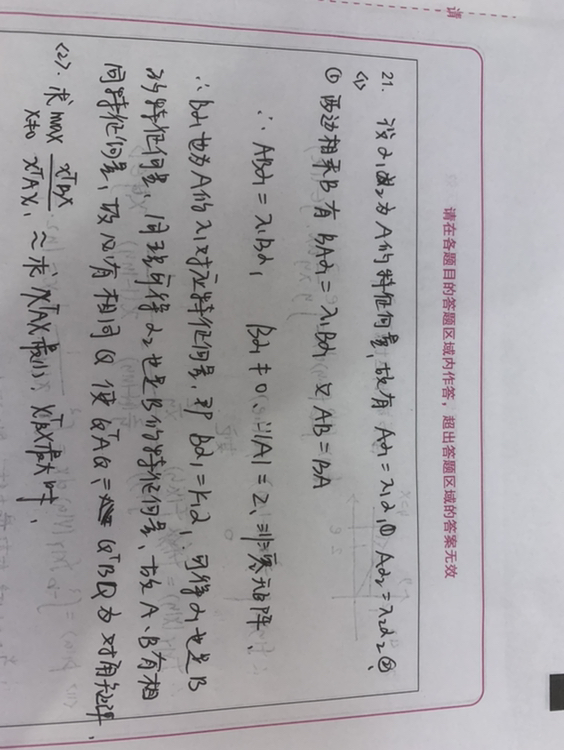 请在各题目的答题区域内作答，超出答题区域的答案无效
21. 设α₁ α₂为A的特征向量，故有 Aα₁=λ₁α₁① Aα₂=λ₂α₂②
(1)
① 两边相乘B 有 BAα₁=λ₁Bα₁ 又 AB=BA
∴ ABα₁=λ₁Bα₁ Bα₁≠0
∴Bα₁也为A的λ₁对应特征向量，即 Bα₁=k₁α₁，可得α₁也是B
的特征向量，同理可得α₂也是B的特征向量，故A、B有相
同特征向量，故必有相同Q 使 QᵀAQ，QᵀBQ为对角矩阵，
(2). 求max xᵀBx/xᵀAx，~求 xᵀAx最小，xᵀBx最大时，
x≠0
请